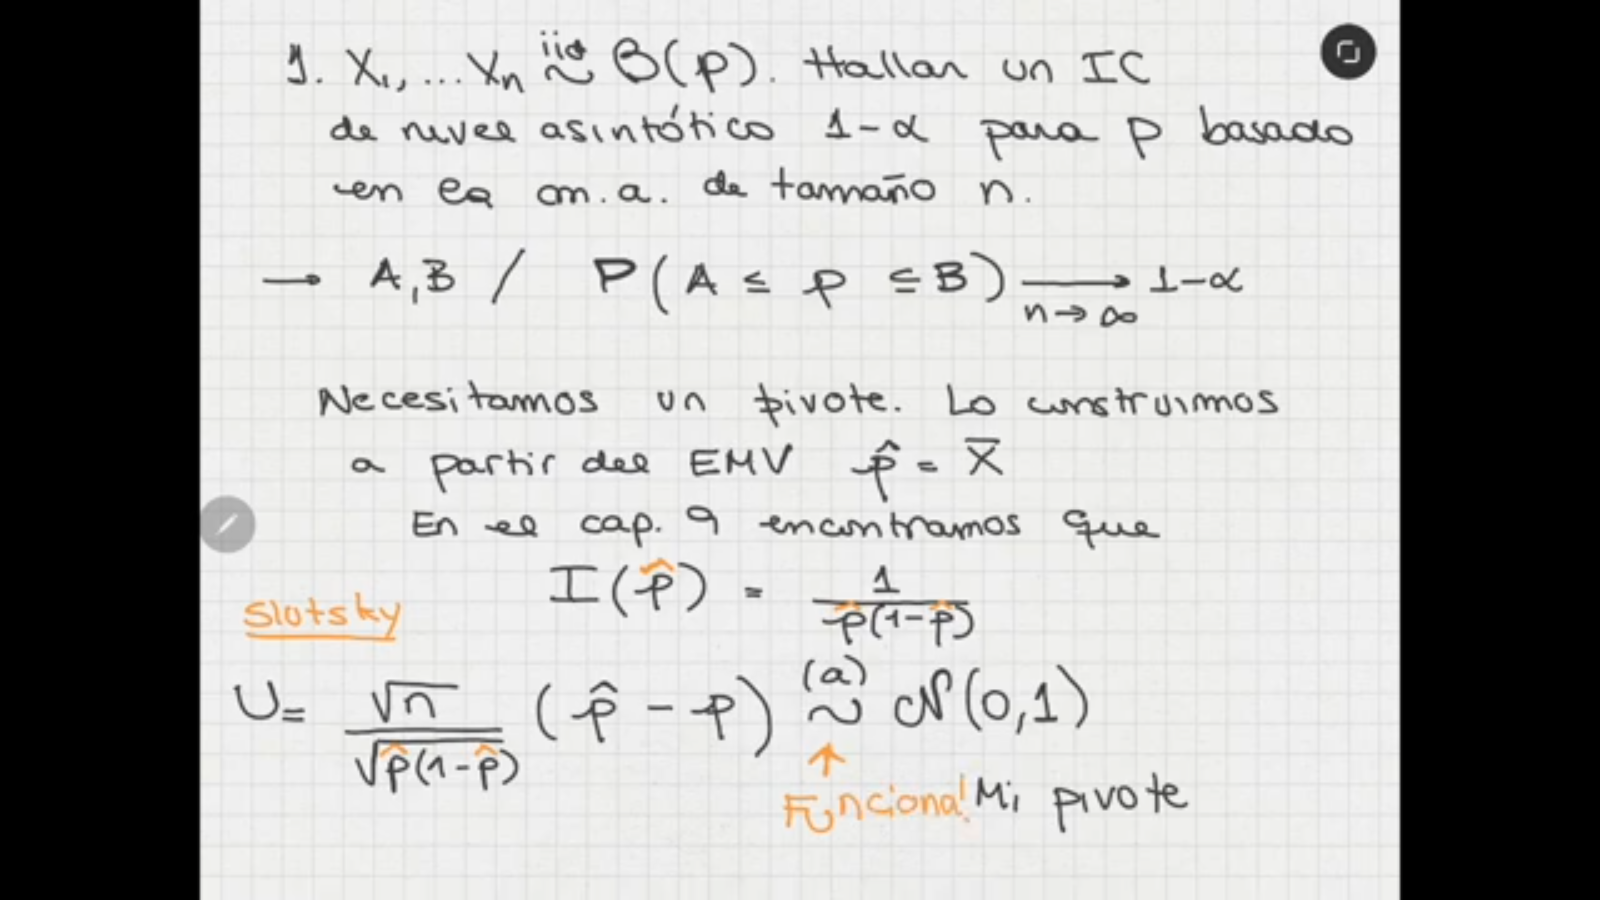 1. X₁, ... Xₙ iid ~ B(p). Hallar un IC
de nivel asintótico 1-α para p basado
en la m.a. de tamaño n.
→ A,B / P(A ≤ p ≤ B) → 1-α
n→∞
Necesitamos un pivote. Lo construimos
a partir del EMV p̂ = X̄
En el cap. 9 encontramos que
I(p̂) = 1/(p̂(1-p̂))
Slotsky
U = √n/√(p̂(1-p̂)) (p̂ - p) (a) ~ N(0,1)
↑
Funciona! Mi pivote